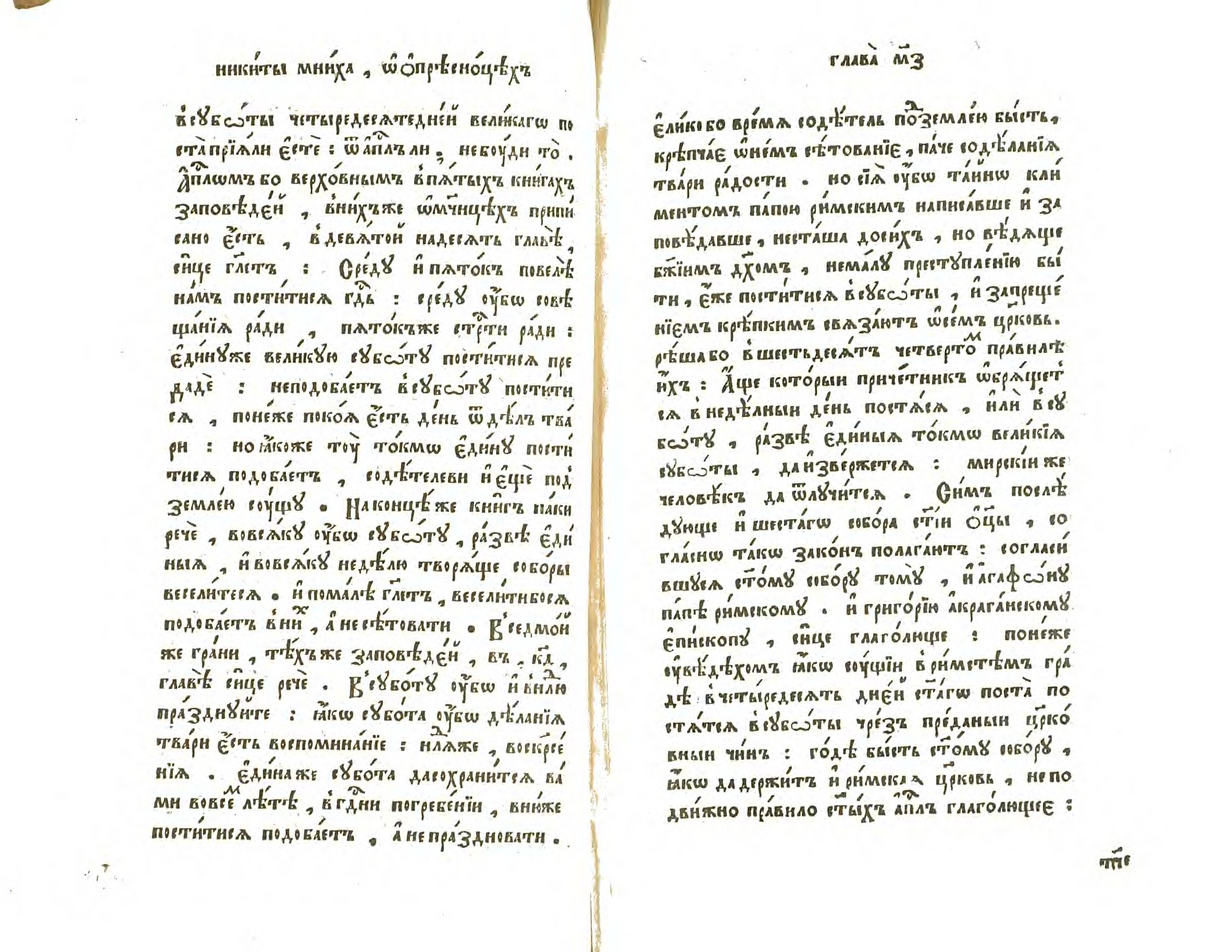 ники́ты мни́ха , ѡ҆ ѻ҆прѣсно́цѣхъ
в̾сꙋбѡ́ты четыредесѧтедне́й вели́кагѡ по
ста̀ прїѧ́ли є҆стѐ : ѿ а҆пⷭ҇лъ ли , небꙋ́ди то̀ .
А҆пⷭ҇лѡмъ бо верхо́внымъ в̾пѧ́тыхъ кни́гахъ
заповѣ́дей , в̾ни́хъже ѡ҆мч҃ницѣхъ припи́
сано є҆́сть , в̾девѧ́той надесѧть главѣ̀ ,
си́це гл҃етъ : Сре́дꙋ и҆ пѧто́къ повелѣ̀
на́мъ пости́тисѧ гдⷭ҇ь : сре́дꙋ ᲂу҆́бѡ совѣ
ща́нїѧ ра́ди , пѧто́къже стрⷭ҇ти ра́ди :
є҆ди́нꙋже вели́кꙋю сꙋбѡ́тꙋ пости́тисѧ пре
дадѐ : неподоба́етъ в̾сꙋбѡ́тꙋ пости́ти
сѧ , поне́же поко́ѧ є҆́сть де́нь ѿ дѣ́лъ тва́
ри : но ꙗ҆́коже тоу̀ то́кмѡ є҆ди́нꙋ пости́
тисѧ подоба́етъ , содѣ́телеви и҆ є҆щѐ под̾
земле́ю сꙋ́щꙋ . На концѣ́ же кни́гъ па́ки
речѐ , во всѧ́кꙋ ᲂу҆́бѡ сꙋбѡ́тꙋ , ра́звѣ є҆ди́
ныѧ , и҆ во всѧ́кꙋ недѣ́лю творѧ́ще собо́ры
весели́тесѧ . и҆ пома́лѣ гл҃етъ , весели́тибосѧ
подоба́етъ в̾ни́ⷯ , а҆ не сѣ́товати . В̾ седмо́й
же гра́ни , тѣ́хъже заповѣ́дей , въ , к҃д ,
главѣ̀ си́це речѐ . В̾ сꙋбо́тꙋ ᲂу҆́бѡ и҆ в̾нлⷣю
пра́зднꙋйте : ꙗ҆́кѡ сꙋбо́та ᲂу҆́бѡ дѣ́ланїѧ
тва́ри є҆́сть воспомина́нїе : нлⷣѧже , воскрⷭ҇е́
нїѧ . є҆ди́на же сꙋбо́та да сохрани́тсѧ ва́
ми во все́ⷨ лѣ́тѣ , в̾ гдⷭ҇ни погребе́нїи , в̾ни́же
пости́тисѧ подоба́етъ , а҆ не пра́здновати .
глава̀ м҃з
є҆ли́ко бо вре́мѧ содѣ́тель поⷣ земле́ю бы́сть ,
крѣпча́е ѡ҆ не́мъ сѣ́тованїе , па́че содѣ́ланїѧ
тва́ри ра́дости . но сїѧ̀ ᲂу҆́бѡ та́йнѡ кли́
ментомъ па́пою ри́мскимъ написа́вше и҆ за
повѣ́давше , не ста́ша до си́хъ , но вѣ́дѧще
бж҃їимъ дх҃омъ , нема́лꙋ престꙋпле́нїю бы́
ти , є҆́же пости́тисѧ в̾сꙋбѡ́ты , и҆ запреще́
нїемъ крѣ́пкимъ свѧза́ютъ ѡ҆ се́мъ цр҃ковь .
рѣ́ша бо в̾шестьдесѧ́тъ четве́ртоⷨ пра́вилѣ
и҆́хъ : А҆́ще кото́рыи приче́тникъ ѡ҆брѧ́щетⷭ҇
сѧ в̾ недѣ́лныи де́нь постѧ́сѧ , и҆лѝ в̾сꙋ
бѡ́тꙋ , ра́звѣ є҆ди́ныѧ то́кмѡ вели́кїѧ
сꙋбѡ́ты , да и҆зве́ржетсѧ : мирскі́й же
человѣ́къ да ѿлꙋчи́тсѧ . Си́мъ послѣ́
дꙋюще и҆ шеста́гѡ собо́ра ст҃і́и ѻ҆ц҃ы̀ , со
гла́снѡ та́кѡ зако́нъ полага́ютъ : согласи́
вшꙋсѧ ст҃о́мꙋ собо́рꙋ томꙋ̀ , и҆ агафѡ́нꙋ
па́пѣ ри́мскомꙋ . и҆ григо́рїю а҆крага́нскомꙋ
є҆пи́скопꙋ , си́це глаго́люще : поне́же
ᲂу҆вѣ́дѣхомъ ꙗ҆́кѡ сꙋ́щїи в̾ ри́мстѣмъ гра́
дѣ в̾ четы́редесѧть дне́й ст҃а́гѡ поста̀ по
стѧ́тсѧ в̾сꙋбѡ́ты чре́зъ пре́даныи цр҃ко́
вныи чи́нъ : го́дѣ бы́сть ст҃о́мꙋ собо́рꙋ ,
ꙗ҆́кѡ да держи́тъ и҆ ри́мскаѧ цр҃ковь , непо
дви́жно пра́вило ст҃ы́хъ а҆пⷭ҇лъ глаго́лющее :